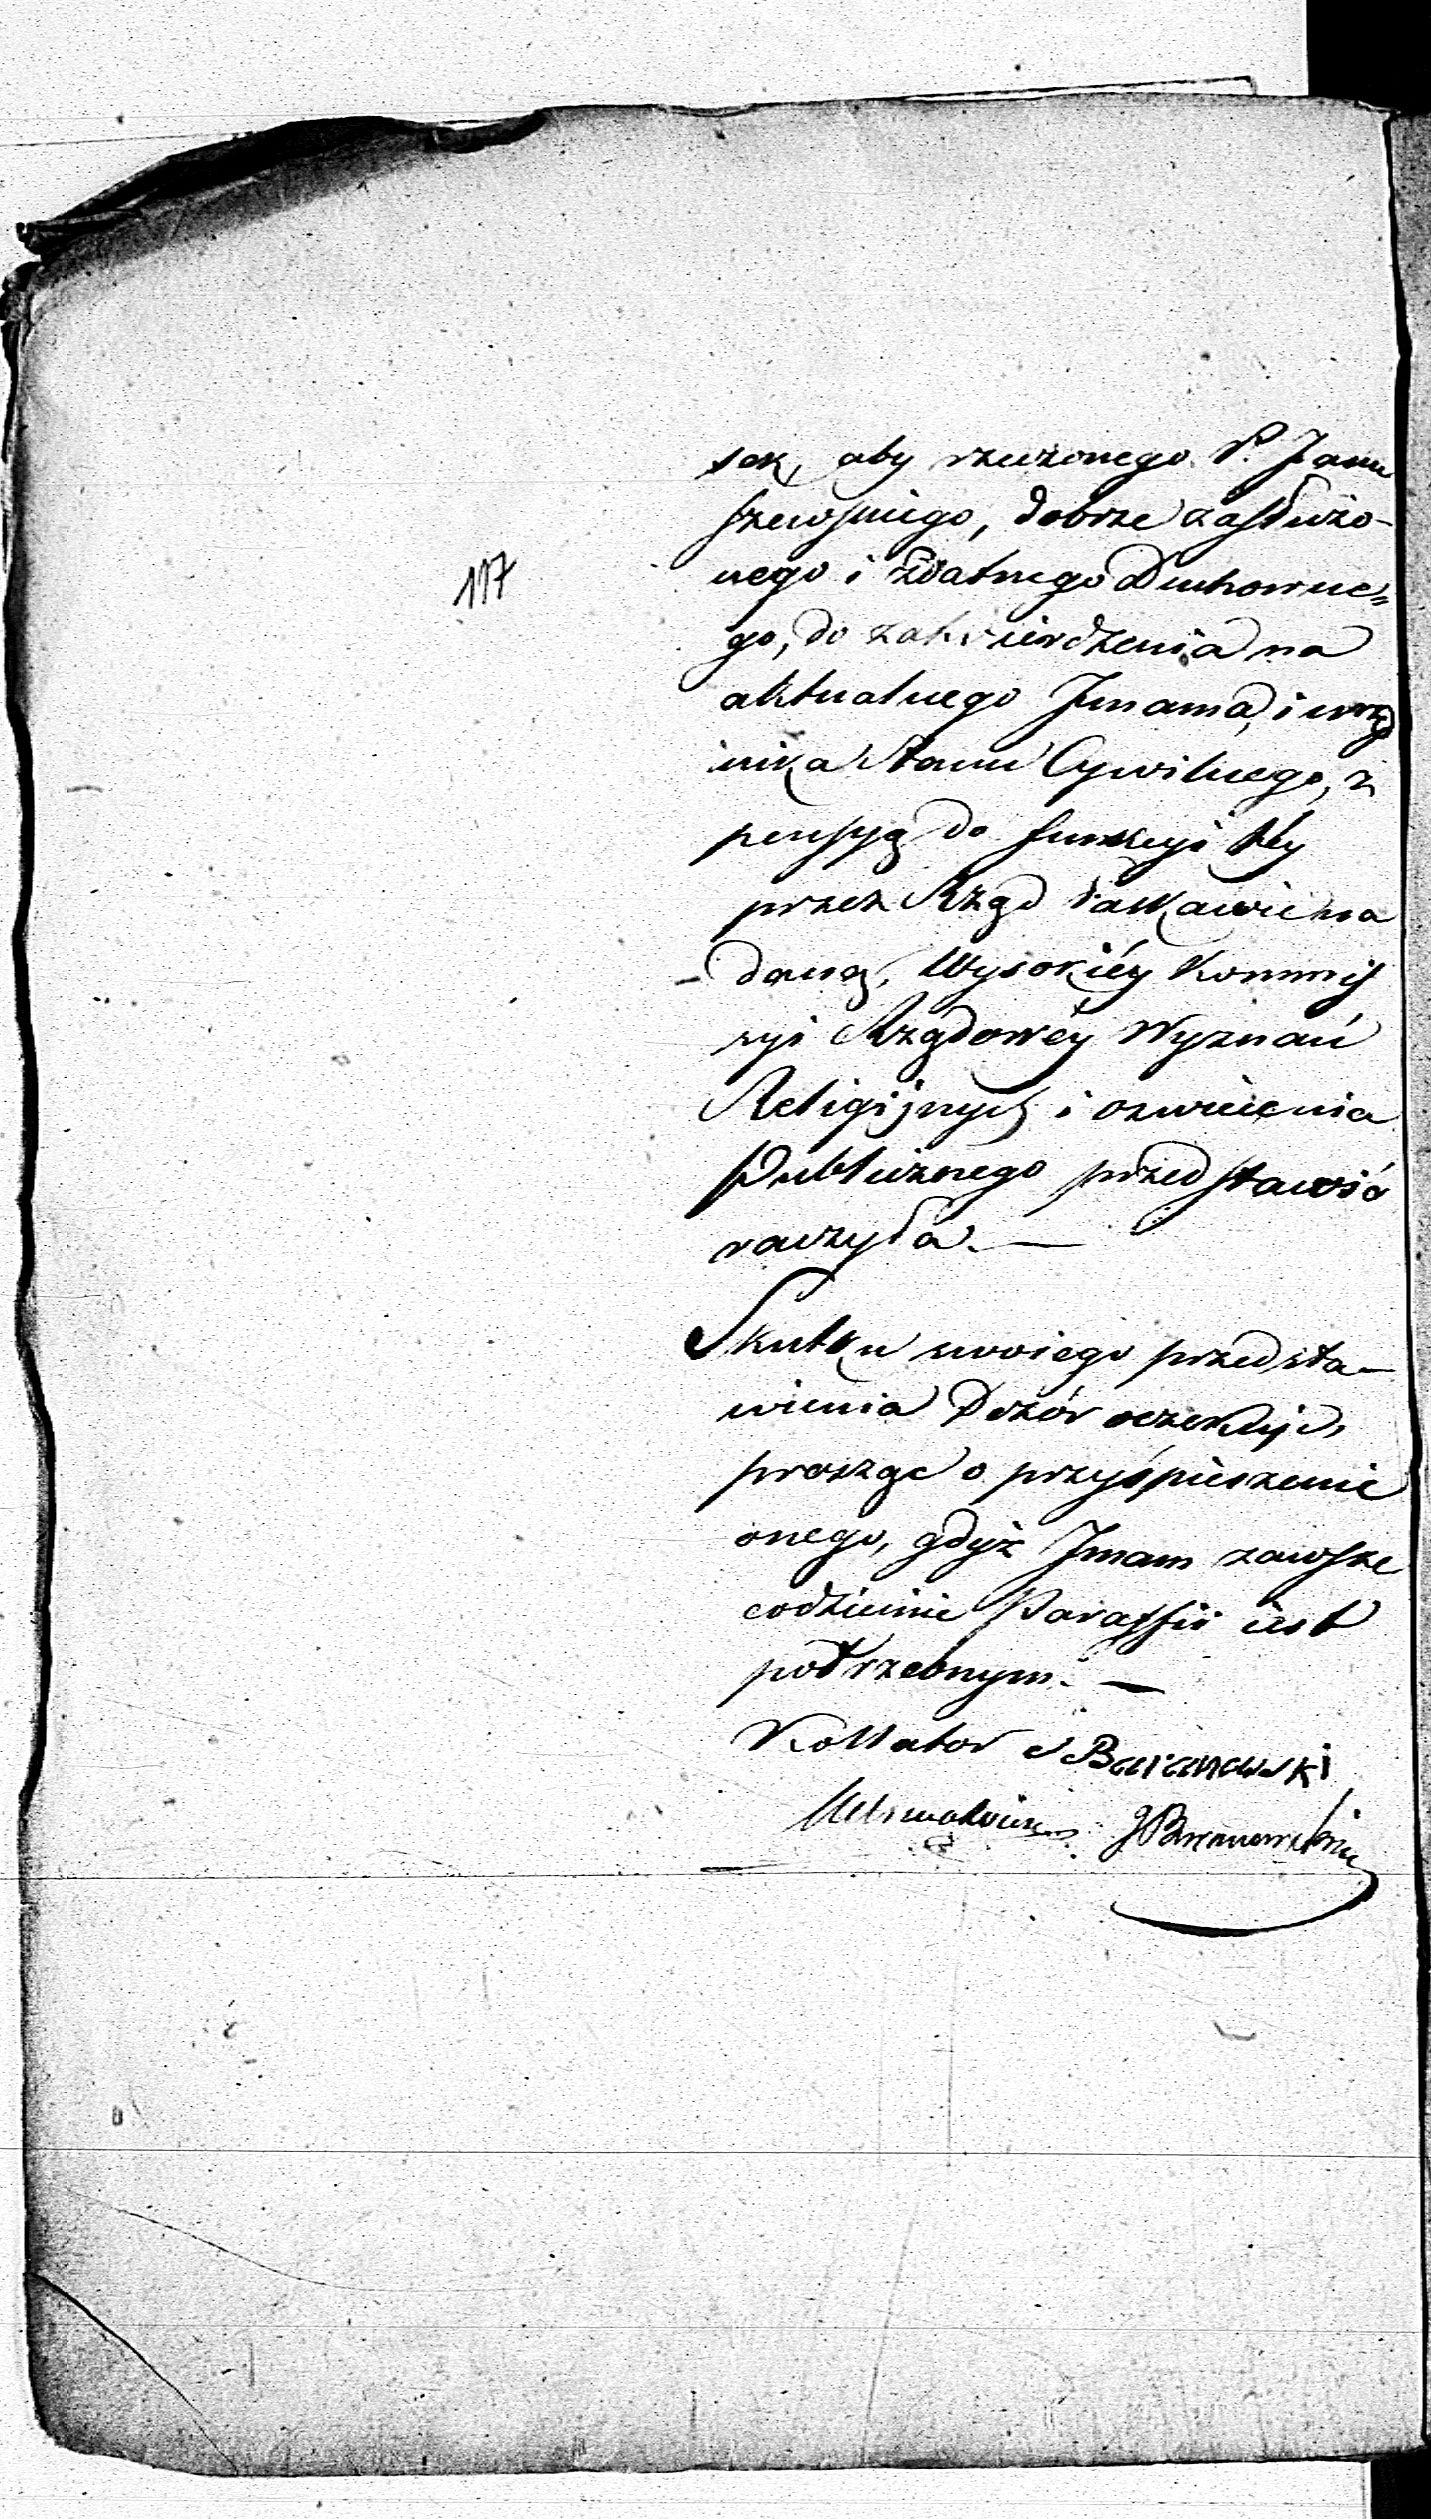 sek, aby rzeczonego P. Janu
szewskiego, dobrze zasłużo-
nego i zdatnego Duchowne„
go, do zatwierdzenia na
aktualnego Imama, i urzęd
nika Stanu Cywilnego, z
pensyą do funkcyi téy
przez Rząd łaskawie na
daną, Wysokiéy Kommis
syi Rządowéy Wyznań
Religijnych i oswiecenia
Publicznego przedstawić
raczyła. —
117
Skutku swoiego przedsta-
wienia Dozór oczekuje,
prosząc o przyśpieszenie
onego, gdyż Imam zawsze
codziennie Paraffii iest
potrzebnym. —
Kollator Baranowski
J Baranowski